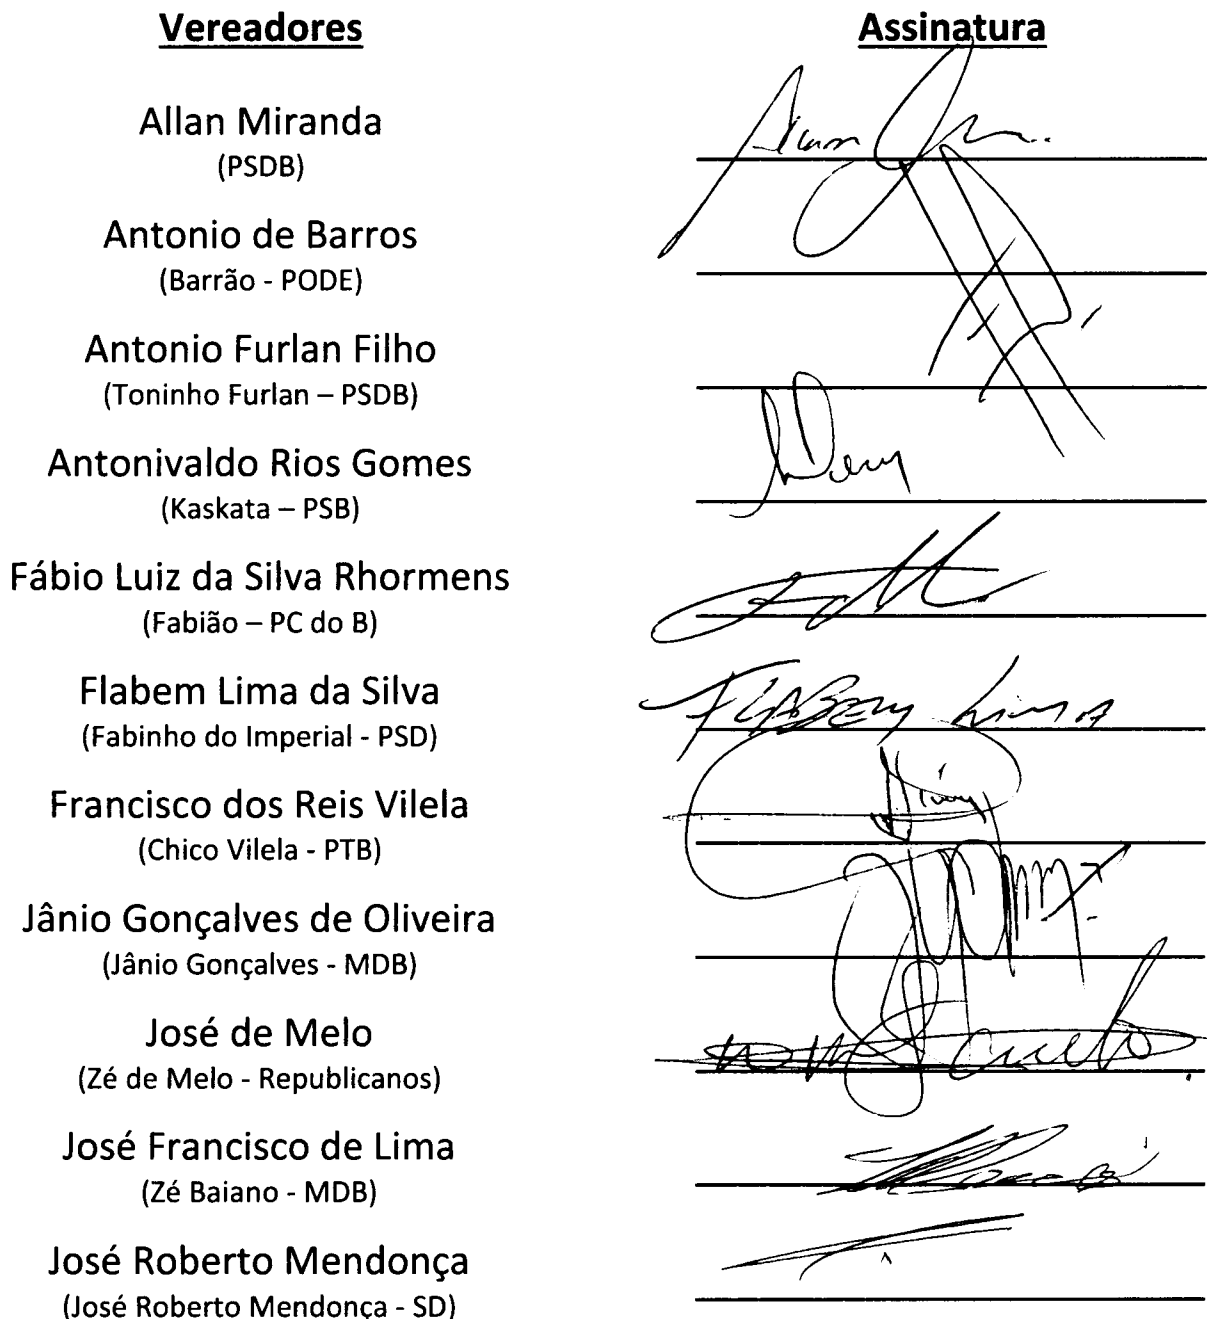 Vereadores Assinatura
Allan Miranda
(PSDB)
Antonio de Barros
(Barrão - PODE)
Antonio Furlan Filho
(Toninho Furlan – PSDB)
Antonivaldo Rios Gomes
(Kaskata – PSB)
Fábio Luiz da Silva Rhormens
(Fabião – PC do B)
Flabem Lima da Silva
(Fabinho do Imperial - PSD)
FLABEM Lima
Francisco dos Reis Vilela
(Chico Vilela - PTB)
Jânio Gonçalves de Oliveira
(Jânio Gonçalves - MDB)
José de Melo
(Zé de Melo - Republicanos)
José Francisco de Lima
(Zé Baiano - MDB)
José Roberto Mendonça
(José Roberto Mendonça - SD)